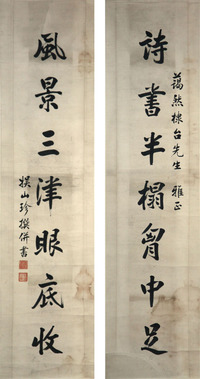 藹然棣台先生 雅正
詩書半榻胷中足
風景三津眼底收
撰并書